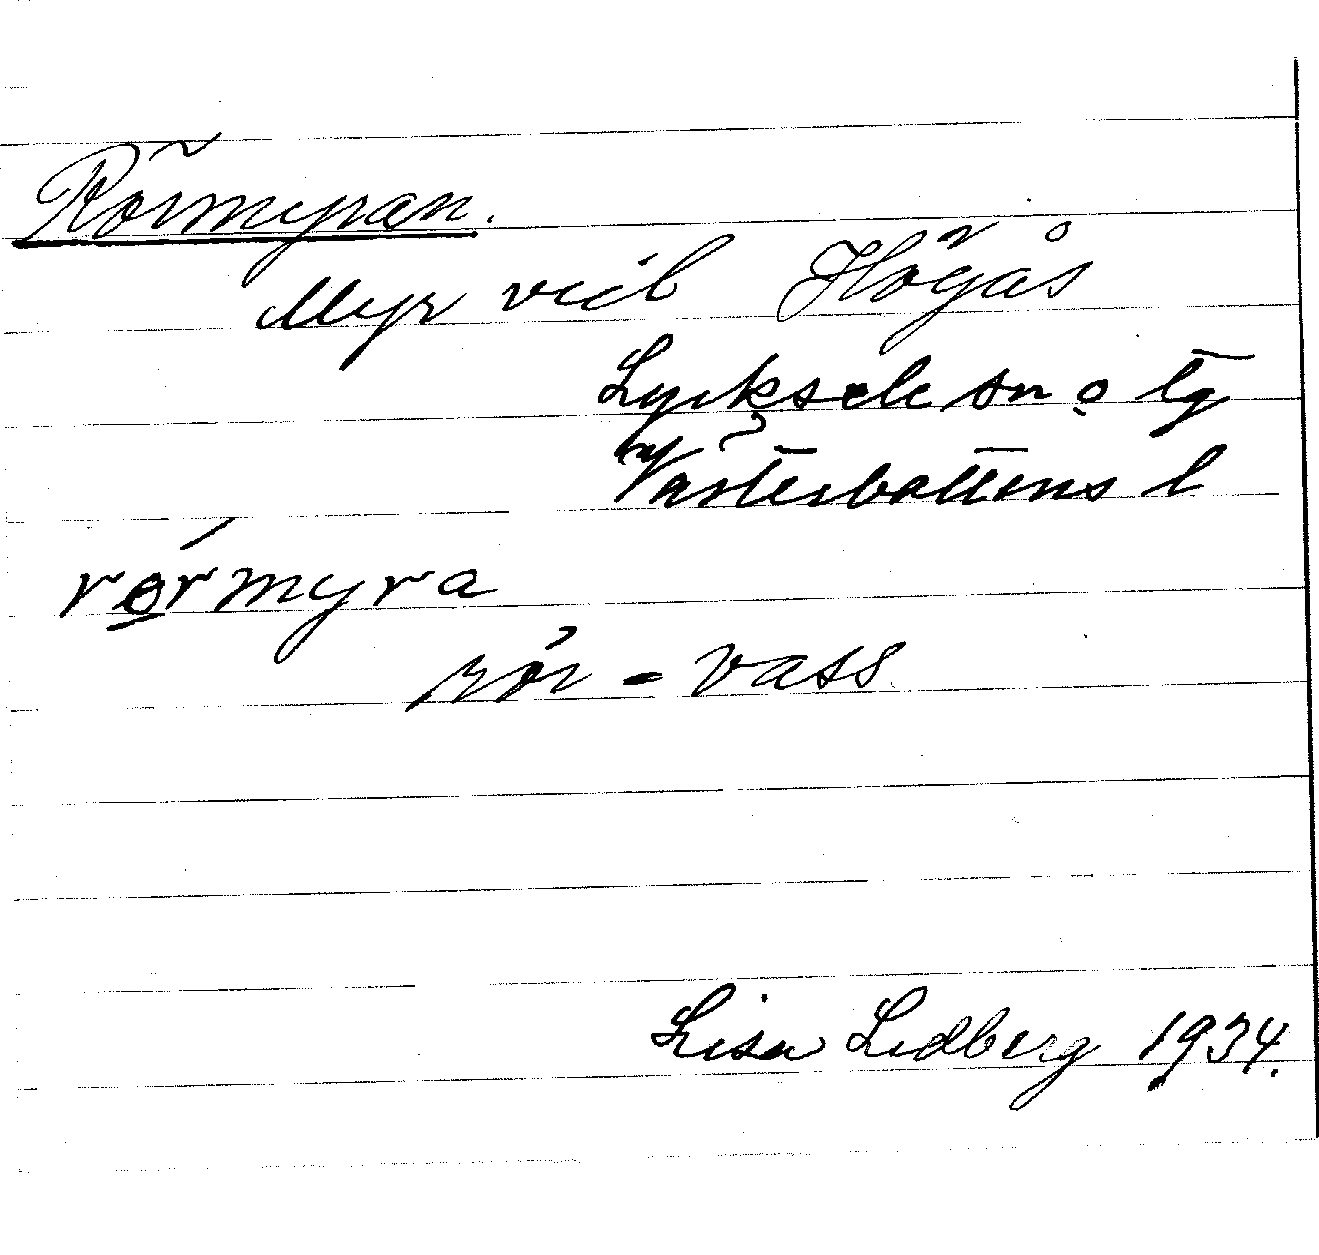 Rörmyran.
Myr vid Högås
Lycksele sn o tg
Västerbottens l
rørmyra
rör = vass
Lisa Lidberg 1934.